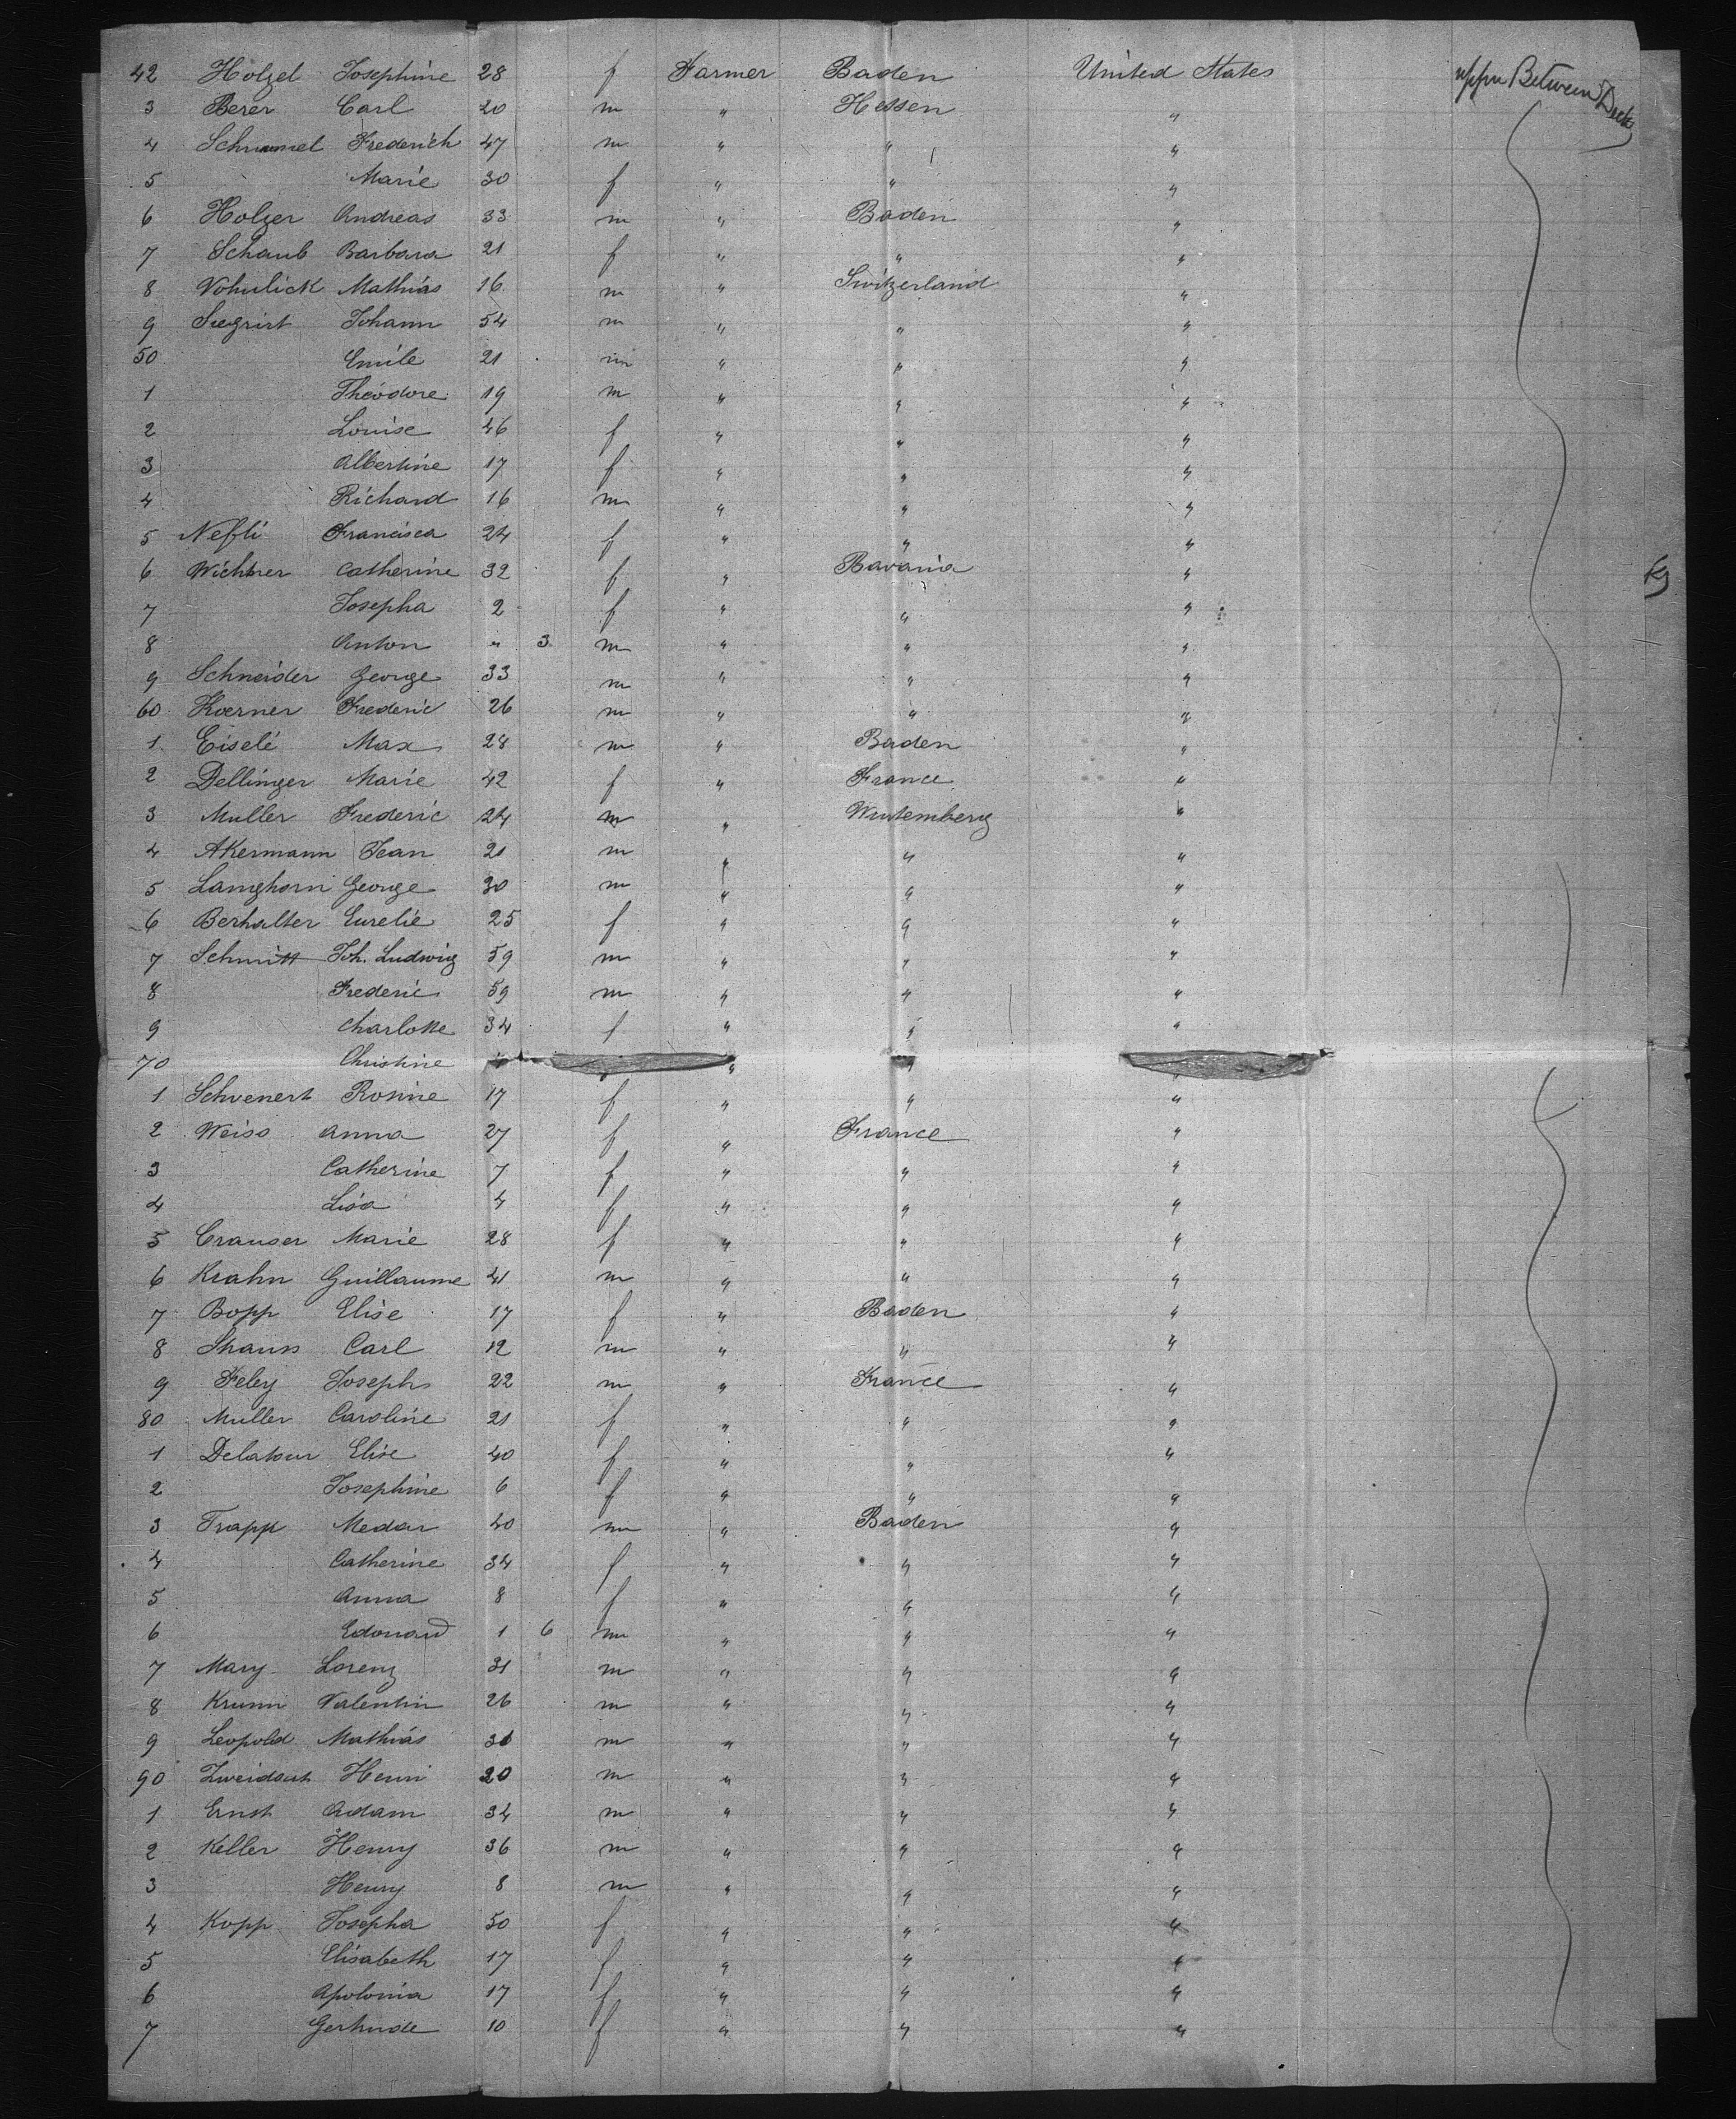 42 Holzel Josephine 28 f Farmer Baden United States upper Between Decks
3 Berer Carl 20 m " Hessen "
4 Schimmel Frederich 47 m " " "
5 Marie 30 f " " "
6 Holzer Andreas 33 m " Baden "
7 Schaub Barbara 21 f " " "
8 Vohulick Mathias 16 m " Switzerland "
9 Siegrist Johann 54 m " " "
50 Emile 21 m " " "
1 Théodore 19 m " " "
2 Louise 46 f " " "
3 Albertine 17 f " " "
4 Richard 16 m " " "
5 Nefli Francisca 24 f " " "
6 Wichtrer Catherine 32 f " Bavaria "
7 Josepha 2 f " " "
8 Anton " 3 m " " "
9 Schneider George 33 m " " "
60 Koerner Frederic 26 m " " "
1 Eiselé Max 28 m " Baden "
2 Dellinger Marie 42 f " France "
3 Muller Frederic 24 m " Wurtemberg "
4 Akermann Jean 21 m " " "
5 Langhorn George 30 m " " "
6 Berhalter Eurelie 25 f " " "
7 Schmitt Joh. Ludwig 59 m " " "
8 Frederic 59 m " " "
9 Charlotte 34 f " " "
70 Christine " "
1 Schvenert Rosine 17 f " " "
2 Weiss Anna 27 f " France "
3 Catherine 7 f " " "
4 Lisa 4 f " " "
5 Crauser Marie 28 f " " "
6 Krahn Guillaume 41 m " " "
7 Bopp Elise 17 f " Baden "
8 Strauss Carl 12 m " " "
9 Feley Joseph 22 m " France "
80 Muller Caroline 21 f " " "
1 Delatour Elise 40 f " " "
2 Josephine 6 f " " "
3 Trapp Medar 40 m " Baden "
4 Catherine 34 f " " "
5 Anna 8 f " " "
6 Edouard 1 6 m " " "
7 Mary Lorenz 31 m " " "
8 Krumm Valentin 26 m " " "
9 Leopold Mathias 31 m " " "
90 Henri 20 m " " "
1 Ernst Adam 34 m " " "
2 Keller Henry 36 m " " "
3 Henry 8 m " " "
4 Kopp Josepha 50 f " " "
5 Elisabeth 17 f " " "
6 Apolonia 17 f " " "
7 Gertrude 10 f " " "